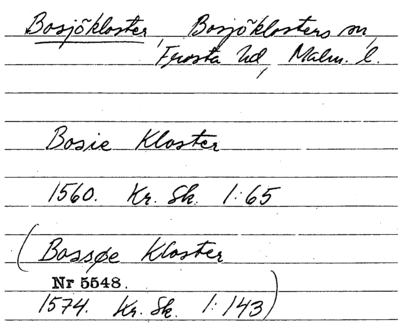 Bosjökloster, Bosjöklosters sn,
Frosta hd, Malm. l.
Bosie Kloster
1560. Kr. Sk. 1:65
(Bossøe Kloster
Nr 5548.
1574. Kr. Sk. 1:143)